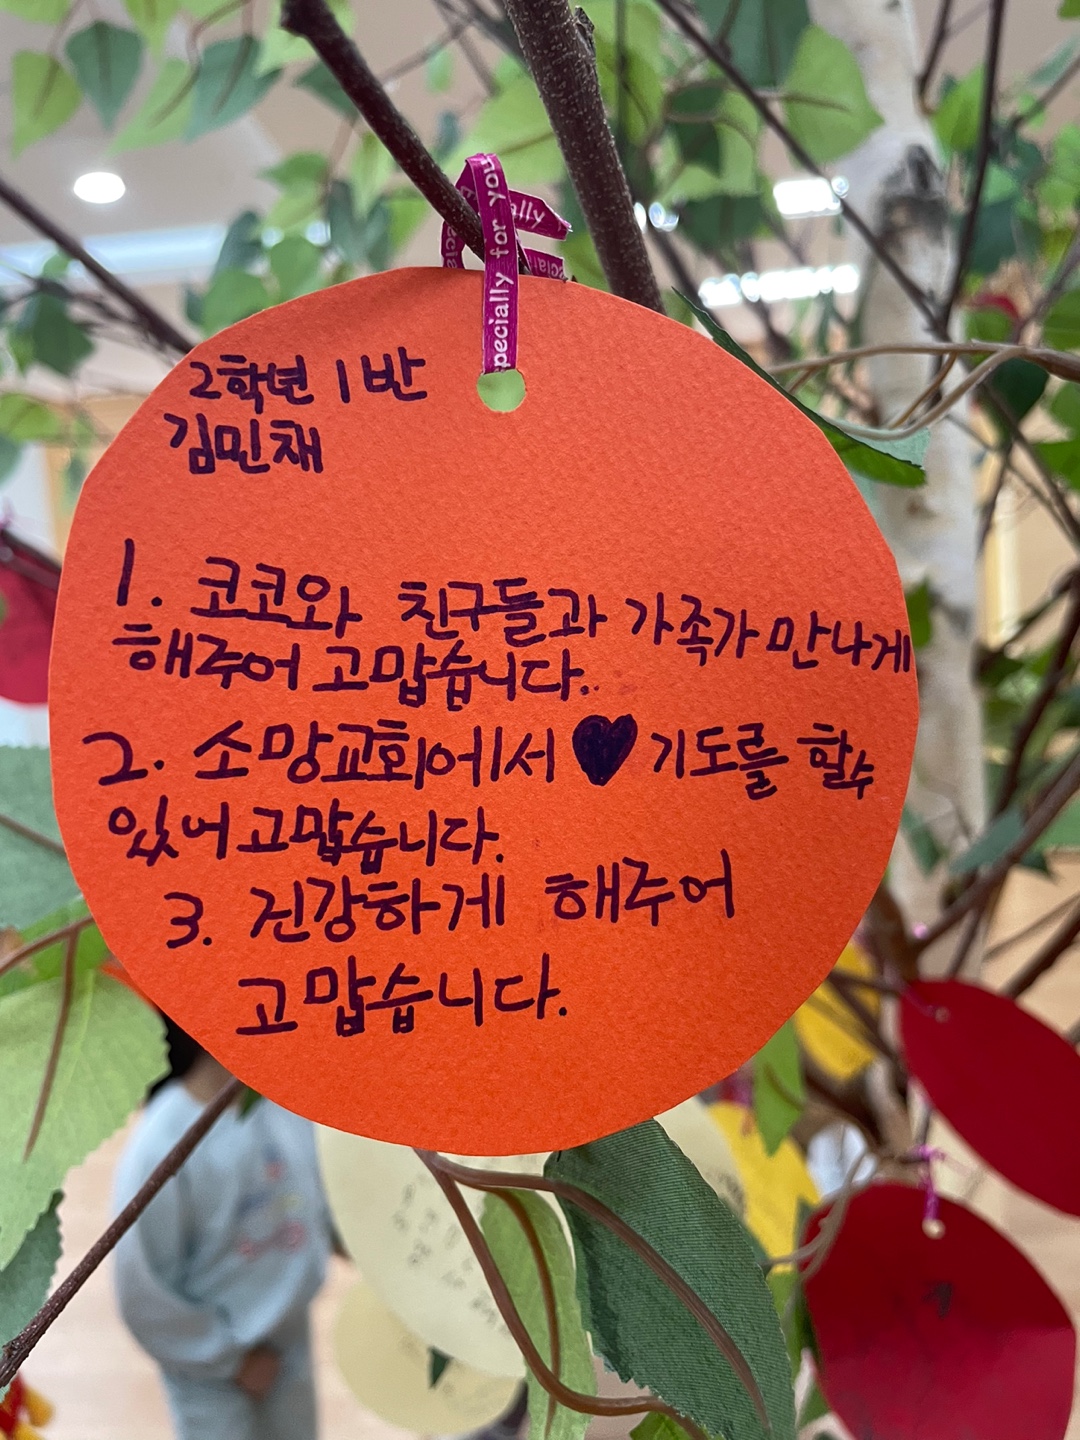 pecially for you
2학년 1반
김민채
1. 코코와 친구들과 가족가 만나게
해주어 고맙습니다.
2. 소망교회에서 ♥ 기도를 할수
있어 고맙습니다.
3. 건강하게 해주어
고맙습니다.